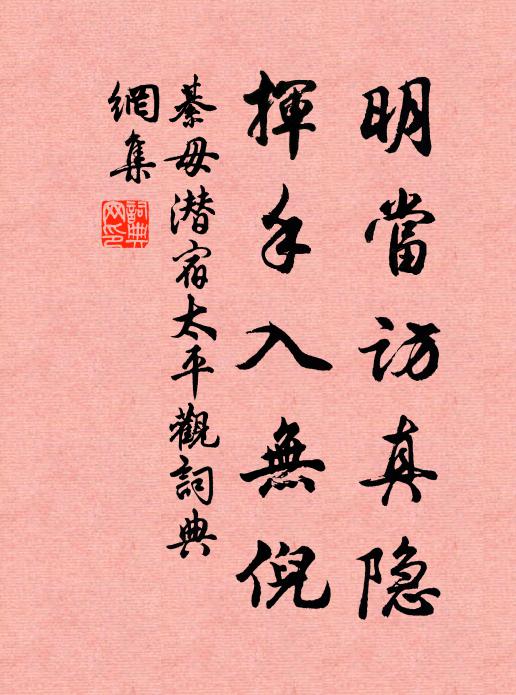 明當访真隐
揮手入無倪
綦毋潜宿太平觀詞典
網集
詞典
网印